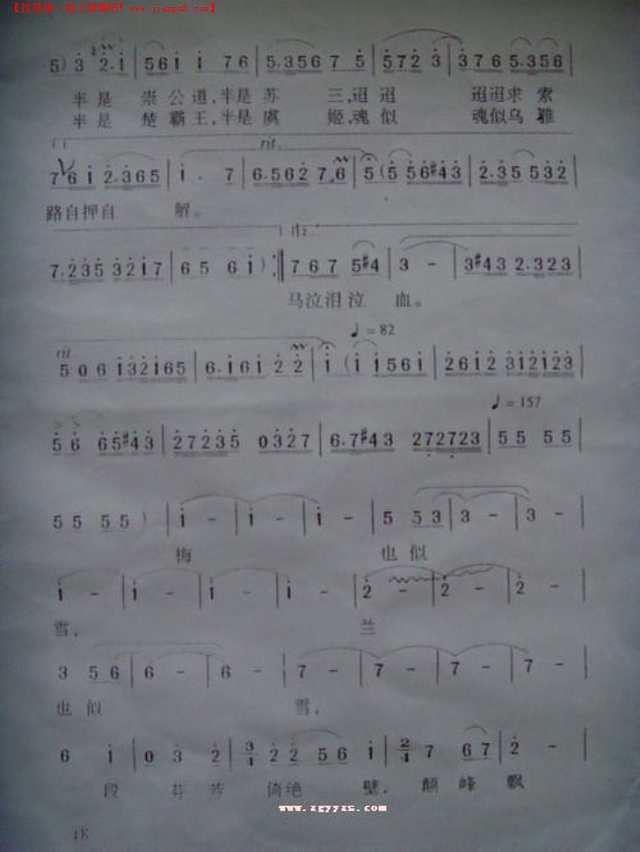 5) 3 2·1 | 5 6 1 1 7 6 | 5·3 5 6 7 5 | 5 7 2 3 | 3 7 6 5·3 5 6 |
半是 崇公道,半是 苏 三,迢 迢 迢迢求 索
半是 楚霸王,半是 虞 姬,魂 似 魂似乌 骓
rit.
7 6 1 2·3 6 5 | 1· 7 | 6·5 6 2 7·6 | 5 (5 5 6 #4 3 | 2·3 5 5 3 2 |
路自押自 解。
7·2 3 5 3 2 1 7 | 6 5 6 1) :‖ 7 6 7 5 #4 | 3 - | 3 #4 3 2·3 2 3 |
马泣泪泣 血。
rit. ♩=82
5 0 6 1 3 2 1 6 5 | 6·1 6 1 2 2 | 1 (1 1 5 6 1 | 2 6 1 2 3 1 2 1 2 3 |
♩=157
5 6 6 5 #4 3 | 2 7 2 3 5 0 3 2 7 | 6·7 #4 3 2 7 2 7 2 3 | 5 5 5 5 |
5 5 5 5) | 1 - | 1 - | 1 - | 5 5 3 | 3 - | 3 - |
梅 也似
1 - | 1 - | 1 - | 1 - | 2 - | 2 - | 2 - |
雪, 兰
3 5 6 | 6 - | 6 - | 7 - | 7 - | 7 - | 7 - |
也 似 雪,
6 1 | 0 3 2 | 3/4 2 2 5 6 1 | 2/4 7 6 7 | 2 - |
段 芬芳 倚绝 壁, 颠 峰 飘
www.zgyyzs.com